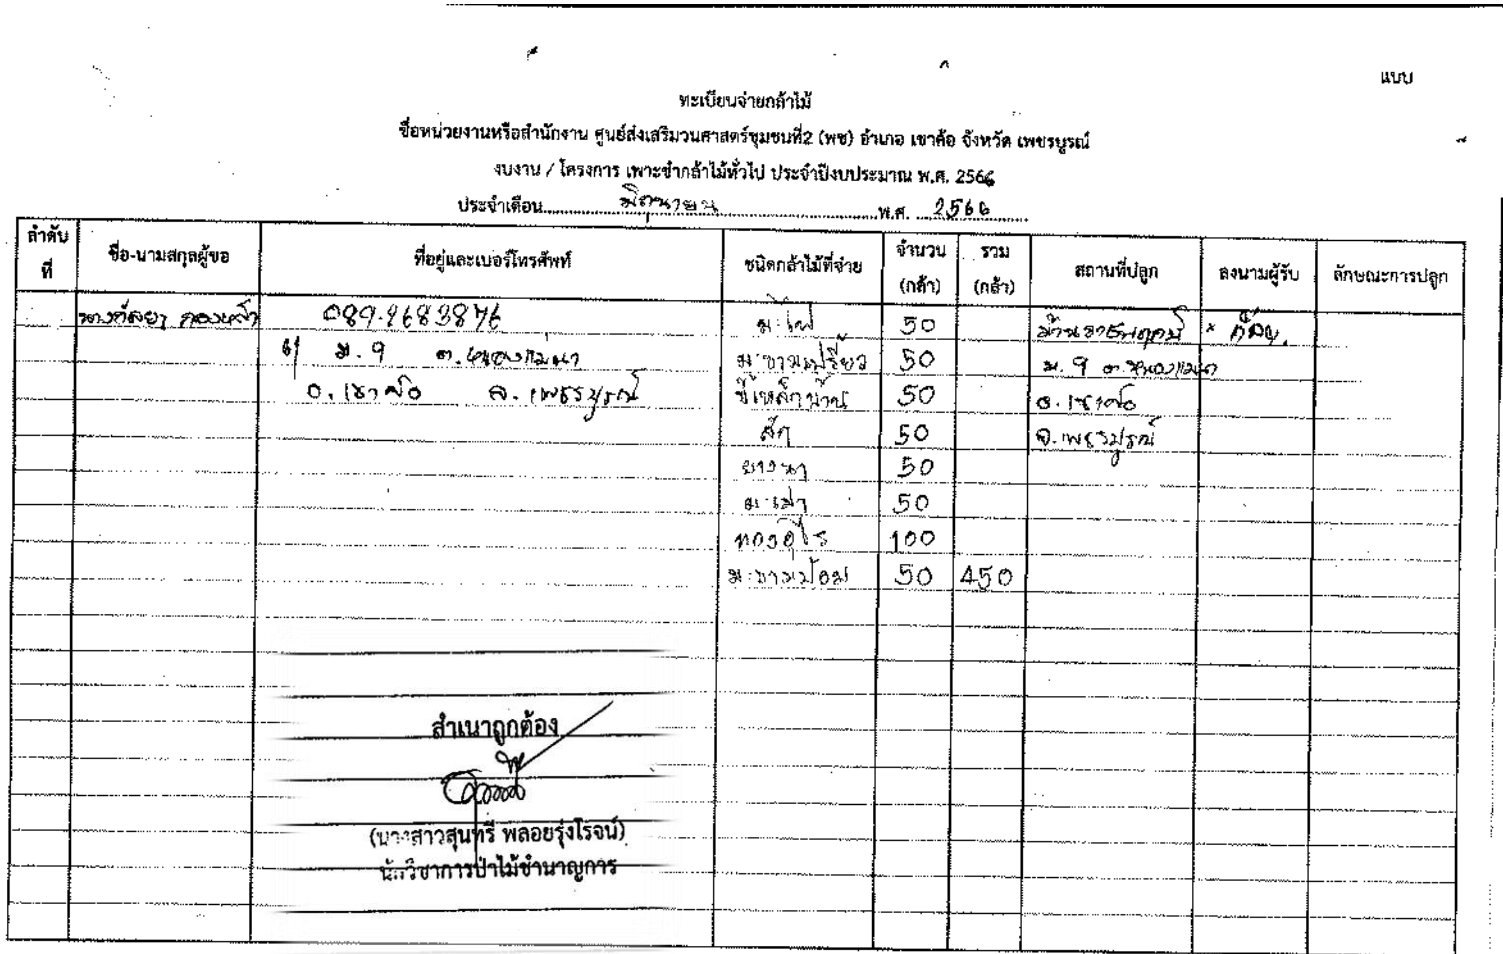 แบบ
ทะเบียนจ่ายกล้าไม้
ชื่อหน่วยงานหรือสำนักงาน ศูนย์ส่งเสริมวนศาสตร์ชุมชนที่2 (พช) อำเภอ เขาค้อ จังหวัด เพชรบูรณ์
งบงาน / โครงการ เพาะชำกล้าไม้ทั่วไป ประจำปีงบประมาณ พ.ศ. 2566
ประจำเดือน มิถุนายน พ.ศ. 2566
ลำดับที่ ชื่อ-นามสกุลผู้ขอ ที่อยู่และเบอร์โทรศัพท์ ชนิดกล้าไม้ที่จ่าย จำนวน (กล้า) รวม (กล้า) สถานที่ปลูก ลงนามผู้รับ ลักษณะการปลูก
นางกัลยา 089-2683876 มะไฟ 50 บ้าน × กัลย
ม.9 ต.หนองแม่นา มะขามเปรี้ยว 50 ม.9 ต.หนองแม่นา
อ.เขาค้อ จ.เพชรบูรณ์ ขี้เหล็กบ้าน 50 อ.เขาค้อ
สัก 50 จ.เพชรบูรณ์
ยางนา 50
มะเม่า 50
ทองอุไร 100
มะขามป้อม 50 450
สำเนาถูกต้อง
(นางสาวสุนทรี พลอยรุ่งโรจน์)
นักวิชาการป่าไม้ชำนาญการ